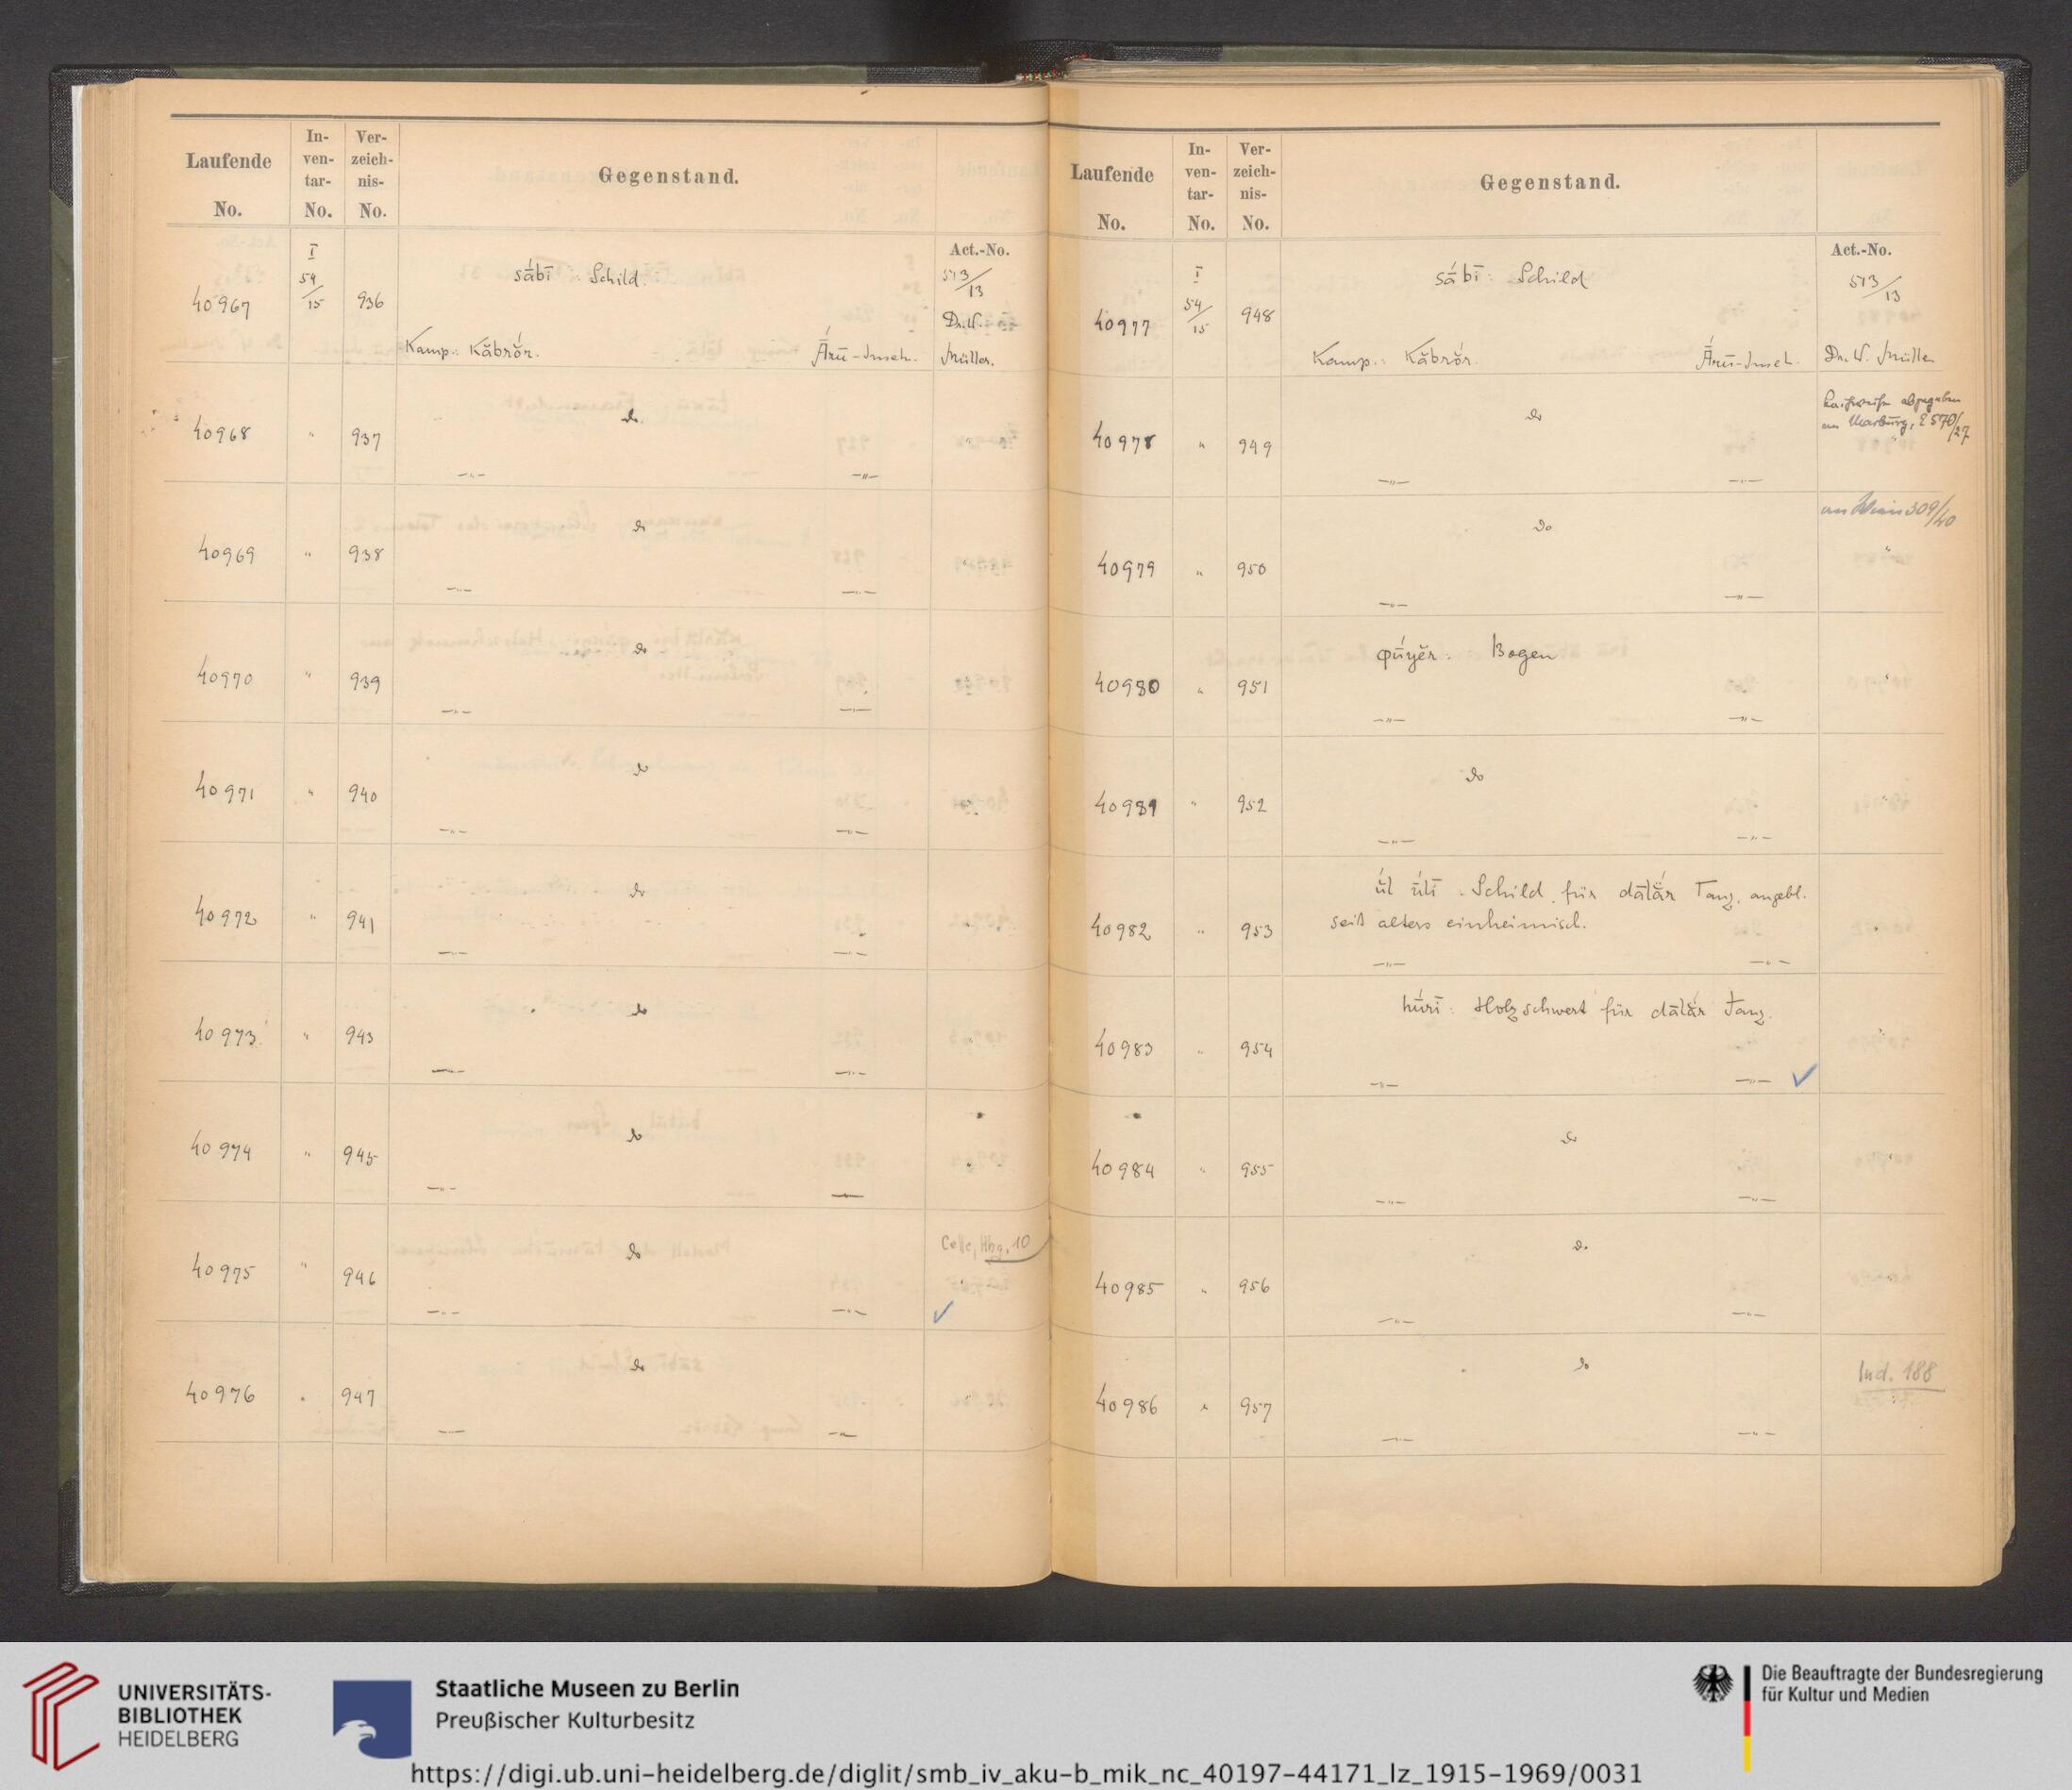 Laufende No. In-ven-tar-No. Ver-zeich-nis-No. Gegenstand.
Act.-No.
40967 I 54/15 936 sā́bī : Schild. 513/13
Dr. W.
Kamp.: Kăbrŏ́r. Ā́rū-Inseln. Müller.
40968 " 937 do. "
—"— —"—
40969 " 938 do "
—"— —"—
40970 " 939 do "
—"— —"—
40971 " 940 do "
—"— —"—
40972 " 941 do "
—"— —"—
40973 " 943 do "
—"— —"—
40974 " 945 do "
—"— —"—
Celle, Hbg. 10
40975 " 946 do "
—"— —"— ✓
40976 " 947 do "
—"— —"—
Laufende No. In-ven-tar-No. Ver-zeich-nis-No. Gegenstand.
Act.-No.
40977 I 54/15 948 sā́bī : Schild 513/13
Kamp.: Kăbrŏ́r. Ā́rū-Inseln. Dr. W. Müller
abgegeben
an Marburg, E 570/27
40978 " 949 do "
—"— —"—
an Wien 309/40
40979 " 950 do "
—"— —"—
40980 " 951 φū́yĕr : Bogen "
—"— —"—
40981 " 952 do "
—"— —"—
40982 " 953 ū́l ū́lī : Schild für dālā́r Tanz, angebl.
seit alters einheimisch. "
—"— —"—
40983 " 954 hū́rī : Holzschwert für dālā́r Tanz. "
—"— —"— ✓
40984 " 955 do "
—"— —"—
40985 " 956 do "
—"— —"—
40986 " 957 do Ind. 188
—"— —"—
UNIVERSITÄTS-
BIBLIOTHEK
HEIDELBERG
Staatliche Museen zu Berlin
Preußischer Kulturbesitz
Die Beauftragte der Bundesregierung
für Kultur und Medien
https://digi.ub.uni-heidelberg.de/diglit/smb_iv_aku-b_mik_nc_40197-44171_lz_1915-1969/0031